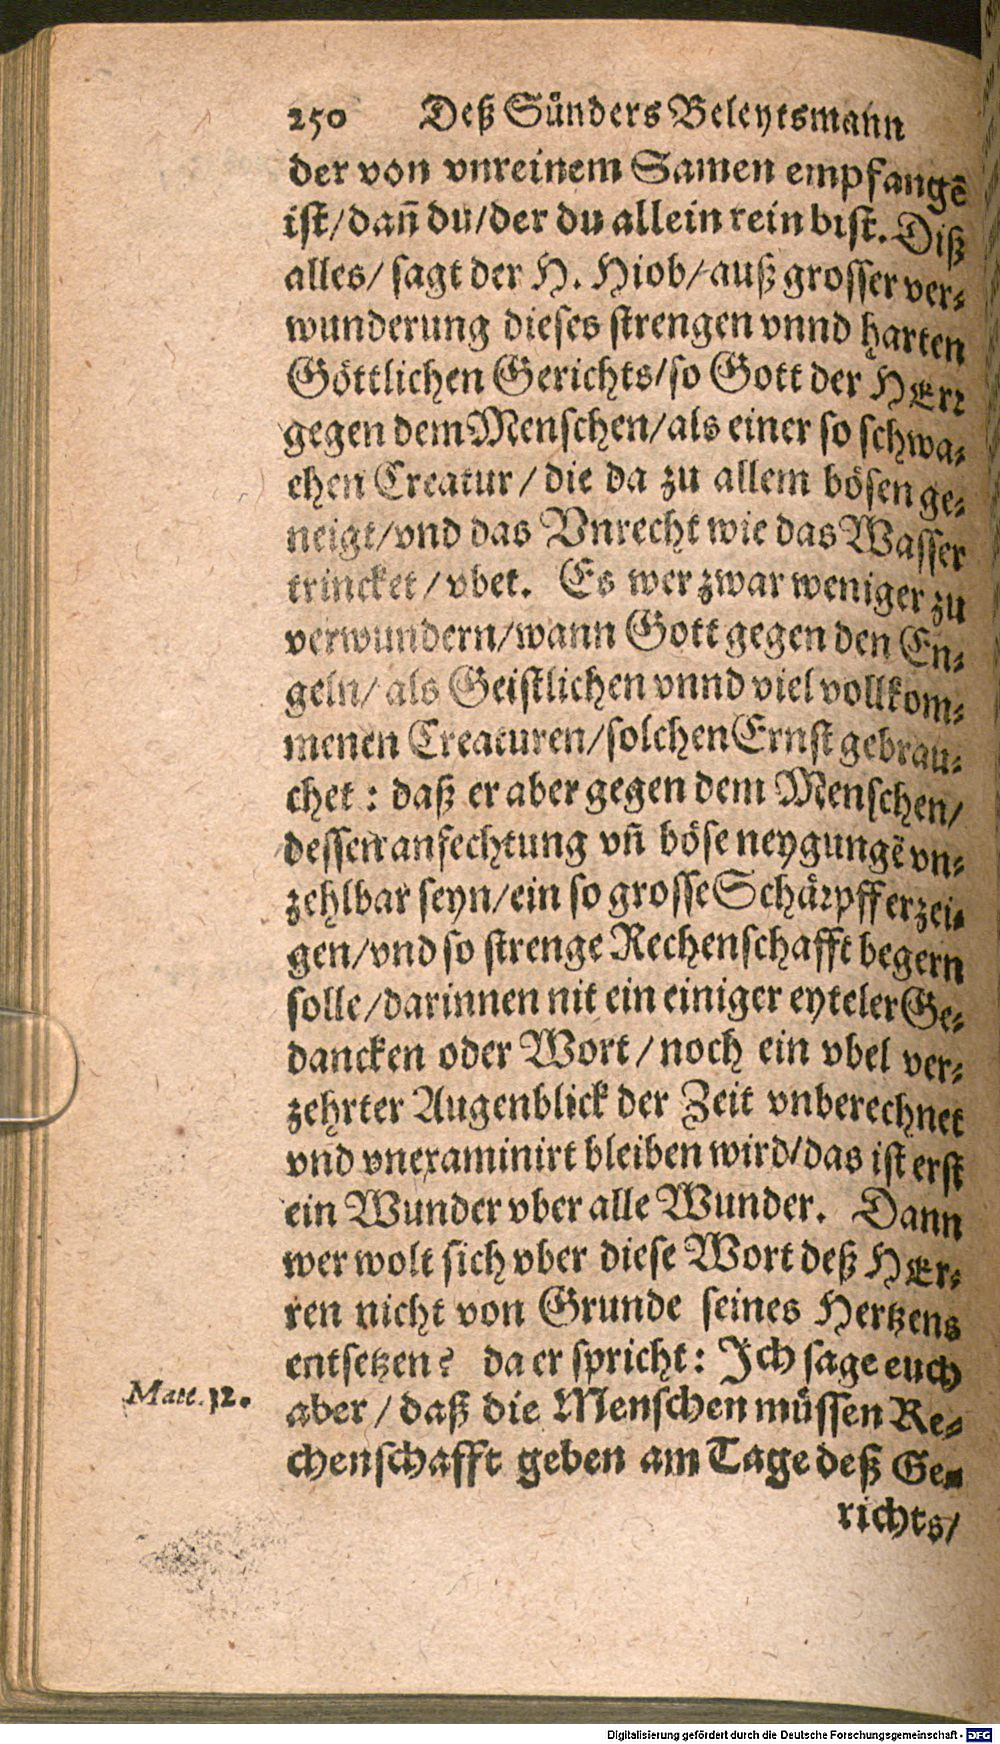 250 Deß Sünders Beleytsmann
der von vnreinem Samen empfangẽ
ist/dañ du/der du allein rein bist. Diß
alles/ sagt der H. Hiob/auß grosser ver-
wunderung dieses strengen vnnd harten
Göttlichen Gerichts/so Gott der HErr
gegen dem Menschen/als einer so schwa-
chen Creatur/die da zu allem bösen ge-
neigt/vnd das Vnrecht wie das Wasser
trincket/vbet. Es wer zwar weniger zu
verwundern/wann Gott gegen den En-
geln/als Geistlichen vnnd viel vollkom-
menen Creaturen/solchen Ernst gebrau-
chet: daß er aber gegen dem Menschen/
dessen anfechtung vñ böse neygungẽ vn-
zehlbar seyn/ein so grosse Schärpff erzei-
gen/vnd so strenge Rechenschafft begern
solle/darinnen nit ein einiger eyteler Ge-
dancken oder Wort/noch ein vbel ver-
zehrter Augenblick der Zeit vnberechnet
vnd vnexaminirt bleiben wird/das ist erst
ein Wunder vber alle Wunder. Dann
wer wolt sich vber diese Wort deß HEr-
ren nicht von Grunde seines Hertzens
entsetzen? da er spricht: Ich sage euch
Matt. 12. aber/daß die Menschen müssen Re-
chenschafft geben am Tage deß Ge-
richts/
Digitalisierung gefördert durch die Deutsche Forschungsgemeinschaft - DFG